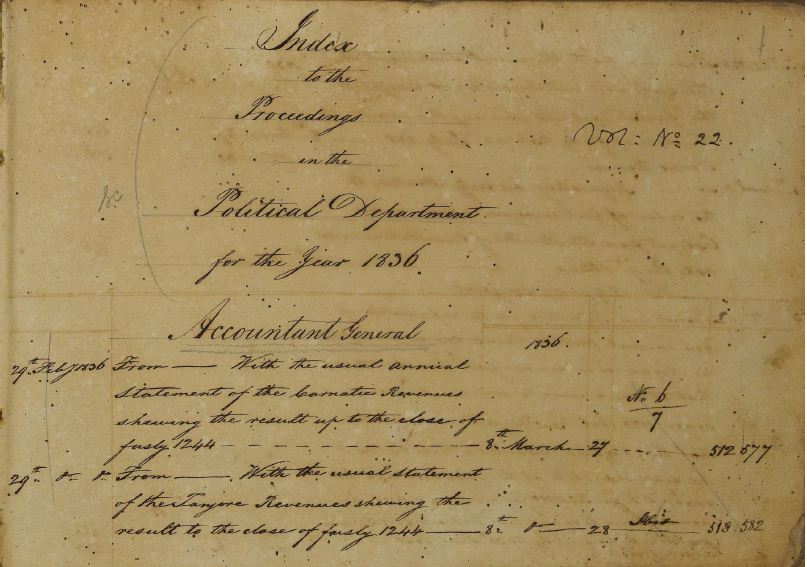 Index
to the
Proceedings
Vol: No 22.
in the
Political Department
for the Year 1836
Accountant General
1836.
29th Feby 1836 From — With the usual annual
Statement of the Carnatic Revenues
No. 6
7
shewing the result up to the close of
fusly 1244 - - - - - - - - 8th March — 27 - - - - 512 577
29th do do From — With the usual statement
of the Tanjore Revenues shewing the
result to the close of fusly 1244 — 8th do — 28 Ibid 518 582